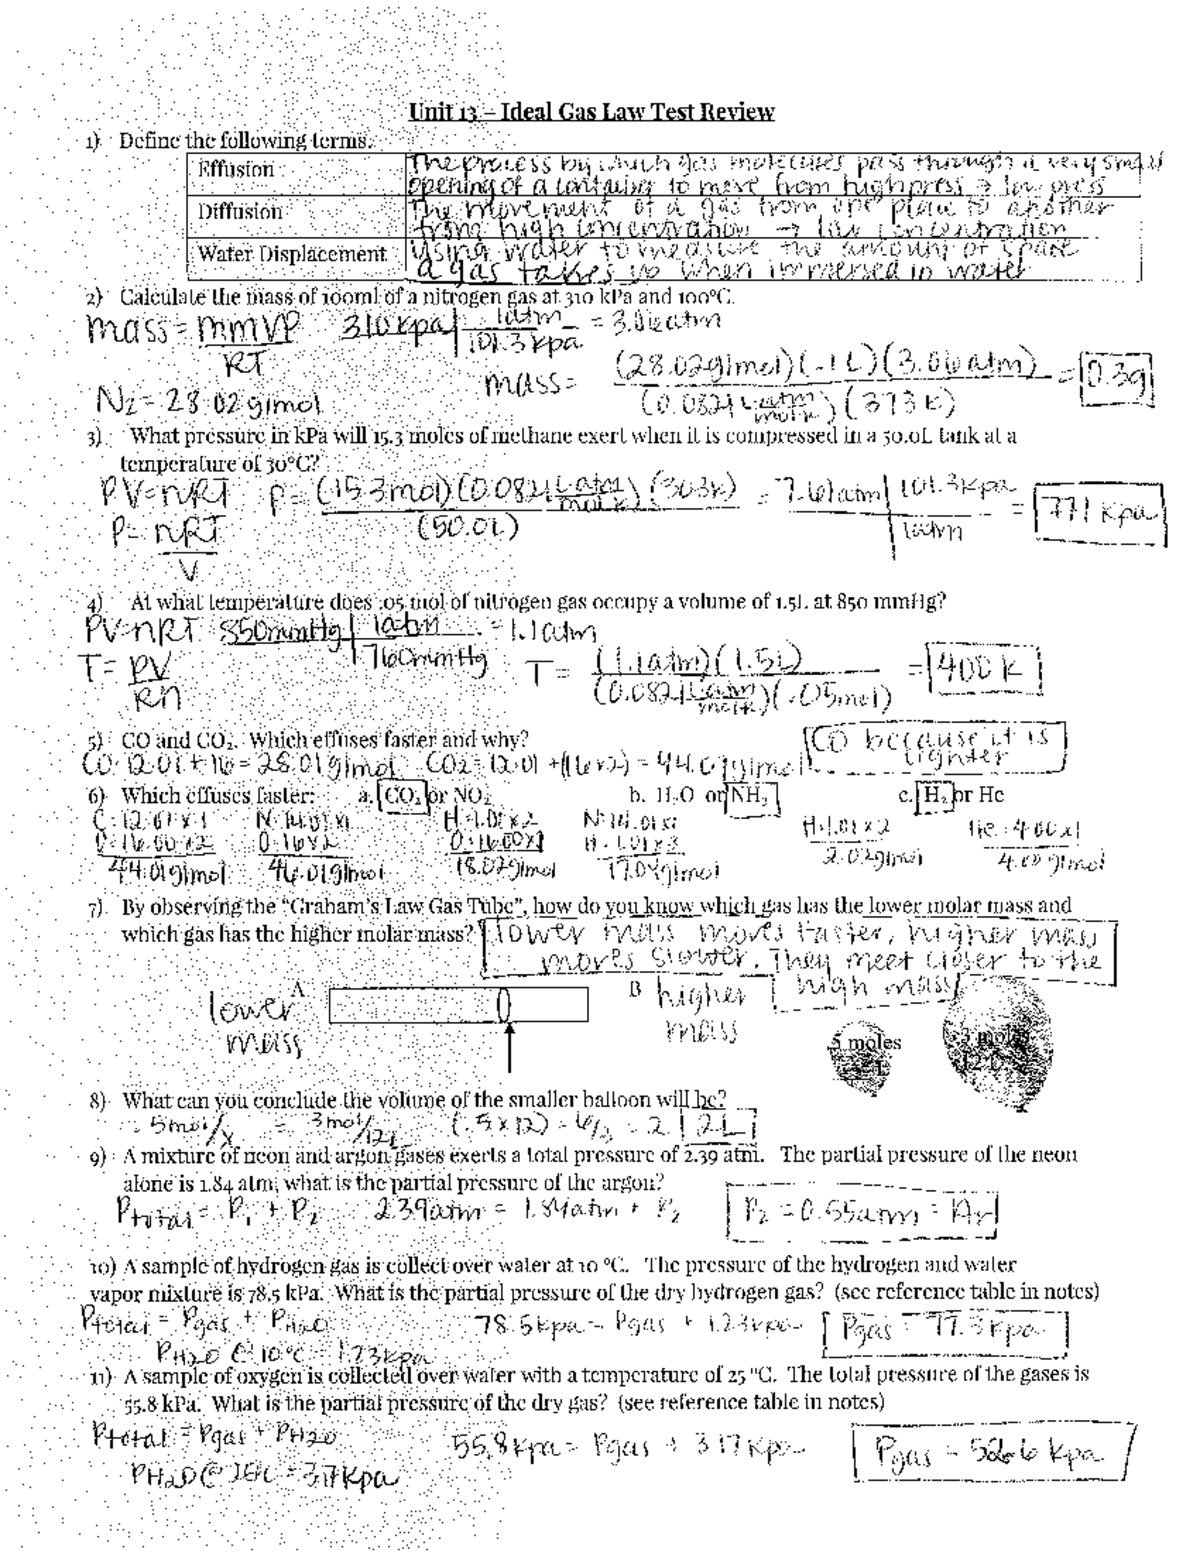 Unit 13 – Ideal Gas Law Test Review
1) Define the following terms.
Effusion The process by which gas molecules pass through a very small
opening of a container to move from high press → low press
Diffusion The movement of a gas from one place to another
from high concentration → low concentration
Water Displacement Using water to measure the amount of space
a gas takes up when immersed in water
2) Calculate the mass of 100ml of a nitrogen gas at 310 kPa and 100°C.
mass = mmVP 310kpa | 1atm = 3.06atm
RT 101.3kpa
mass = (28.02g/mol)(.1L)(3.06atm) = 0.3g
N2 = 28.02g/mol (0.0821 L atm/mol k)(373k)
3) What pressure in kPa will 15.3 moles of methane exert when it is compressed in a 50.0L tank at a
temperature of 30°C?
PV=nRT P= (15.3mol)(0.0821 L atm/mol k)(303k) = 7.61atm | 101.3kpa = 771 kpa
P= nRT (50.0L) 1atm
V
4) At what temperature does .05 mol of nitrogen gas occupy a volume of 1.5L at 850 mmHg?
PV=nRT 850mmHg | 1atm = 1.1atm
760mmHg
T= PV T= (1.1atm)(1.5L) = 400k
Rn (0.0821 L atm/mol k)(.05mol)
5) CO and CO2. Which effuses faster and why? CO because it is
lighter
CO: 12.01+16=28.01g/mol CO2=12.01+(16x2)=44.01g/mol
6) Which effuses faster: a. CO2 or NO2 b. H2O or NH3 c. H2 or He
C:12.01x1 N:14.01x1 H:1.01x2 N:14.01x1 H:1.01x2 He:4.00x1
O:16.00x2 O:16x2 O:16.00x1 H:1.01x3 2.02g/mol 4.00g/mol
44.01g/mol 46.01g/mol 18.02g/mol 17.04g/mol
7) By observing the "Graham's Law Gas Tube", how do you know which gas has the lower molar mass and
which gas has the higher molar mass? lower mass moves faster, higher mass
moves slower. They meet closer to the
high mass
A B
lower mass
higher mass
.5 moles
3 moles
12 L
8) What can you conclude the volume of the smaller balloon will be?
.5mol/x = 3mol/12L (.5x12)=6/3=2 2L
9) A mixture of neon and argon gases exerts a total pressure of 2.39 atm. The partial pressure of the neon
alone is 1.84 atm, what is the partial pressure of the argon?
Ptotal = P1 + P2 2.39atm = 1.84atm + P2 P2 = 0.55atm = Ar
10) A sample of hydrogen gas is collect over water at 10 °C. The pressure of the hydrogen and water
vapor mixture is 78.5 kPa. What is the partial pressure of the dry hydrogen gas? (see reference table in notes)
Ptotal = Pgas + PH2O 78.5kpa = Pgas + 1.23kpa Pgas = 77.3kpa
PH2O @ 10°C = 1.23kpa
11) A sample of oxygen is collected over water with a temperature of 25 °C. The total pressure of the gases is
55.8 kPa. What is the partial pressure of the dry gas? (see reference table in notes)
Ptotal = Pgas + PH2O 55.8kpa = Pgas + 3.17kpa Pgas = 52.6 kpa
PH2O @ 25°C = 3.17kpa